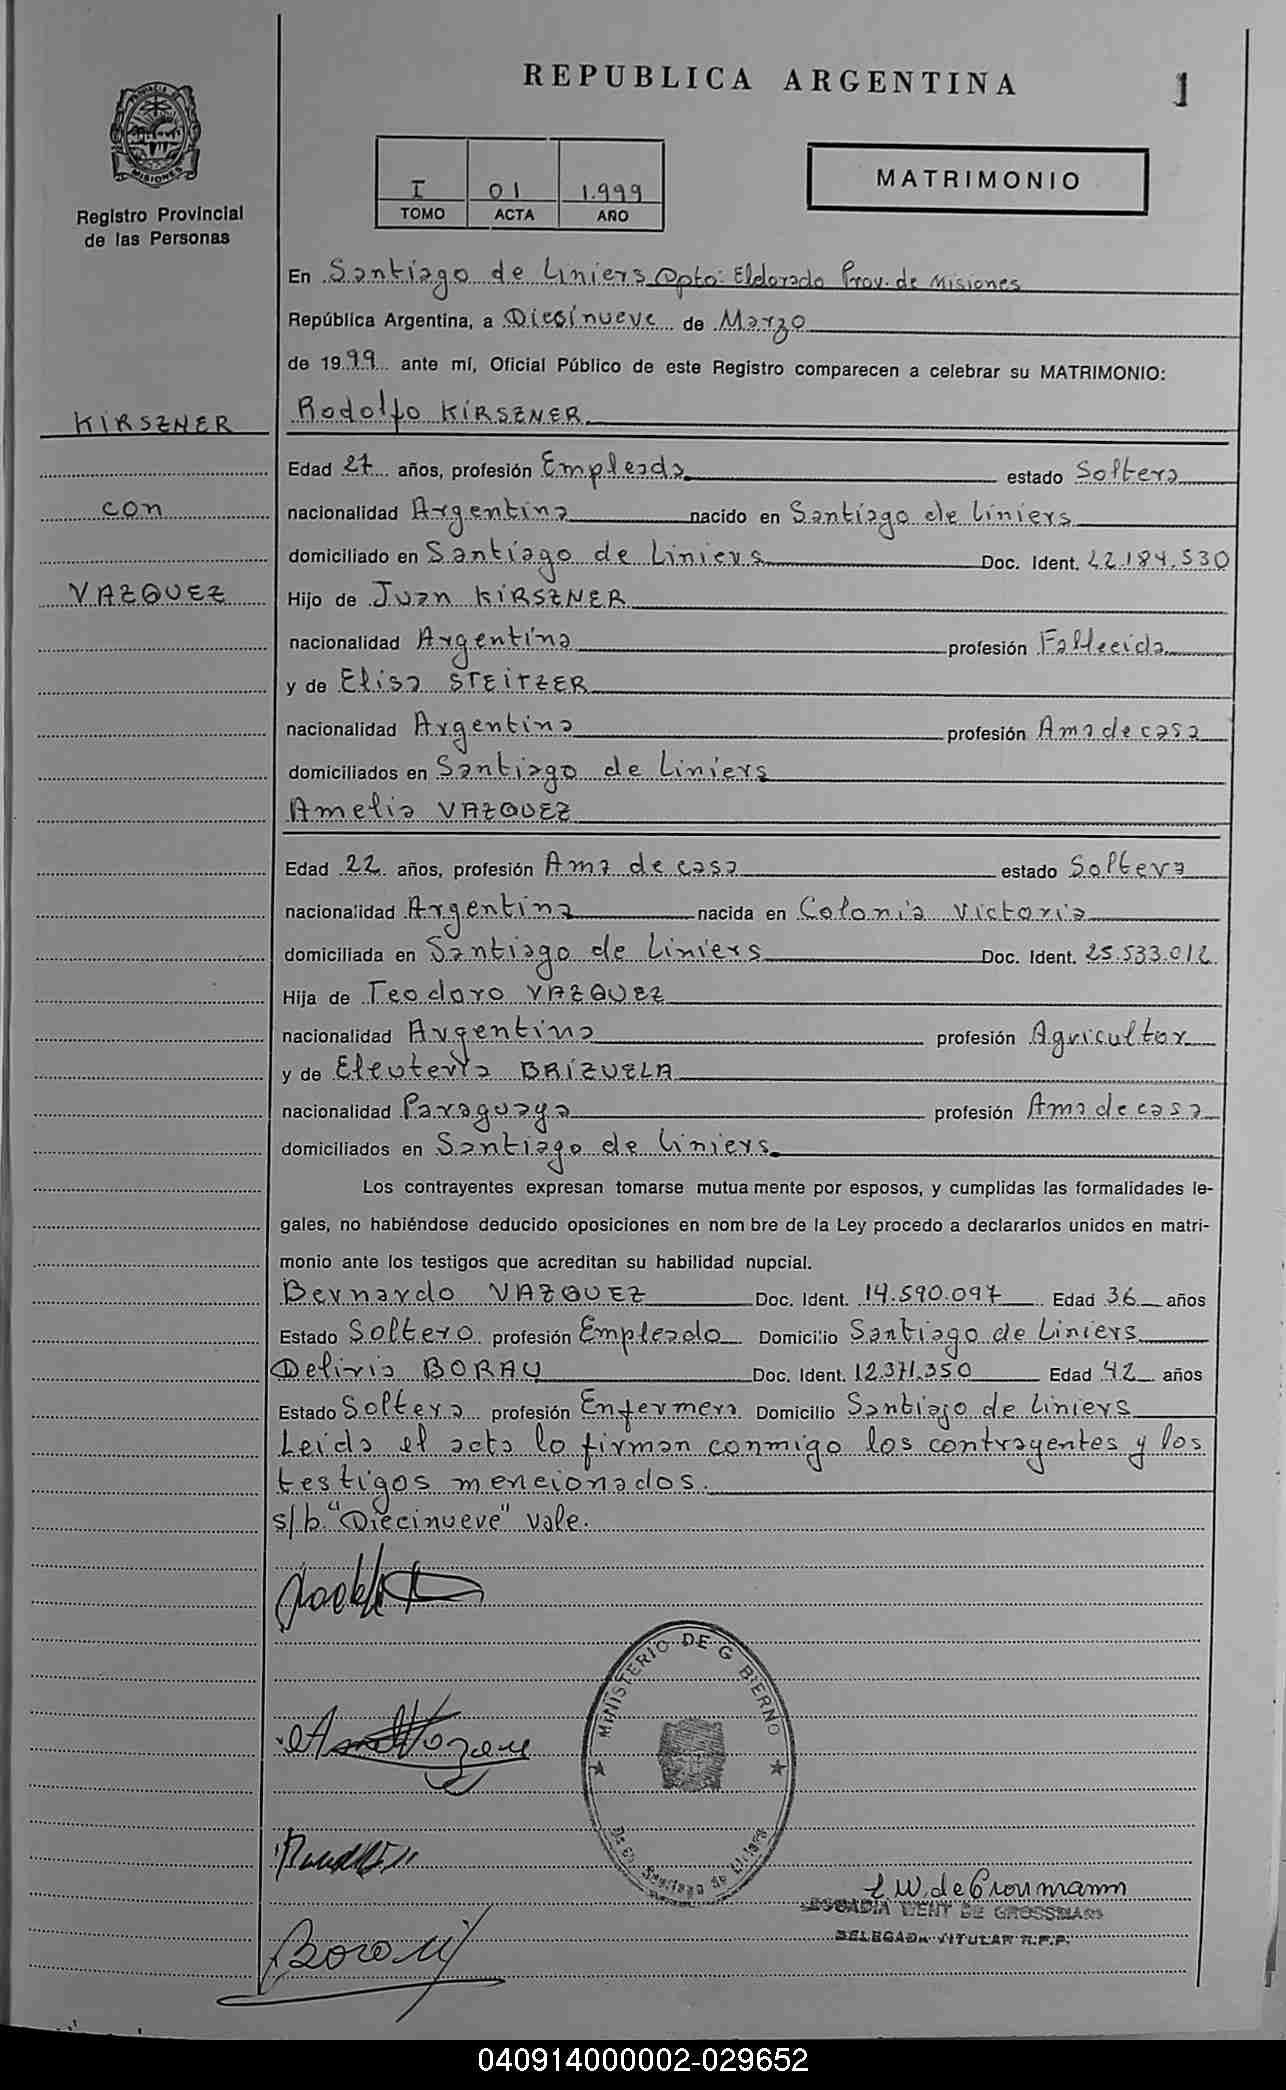 REPUBLICA ARGENTINA
1
PROVINCIA DE
MISIONES
Registro Provincial
de las Personas
I 01 1.999
TOMO ACTA AÑO
MATRIMONIO
En Santiago de Liniers Dpto: Eldorado Prov. de Misiones
República Argentina, a Diecinueve de Marzo
de 1999 ante mí, Oficial Público de este Registro comparecen a celebrar su MATRIMONIO:
KIRSZNER
Rodolfo KIRSZNER
Edad 27 años, profesión Empleado estado Soltero
con
nacionalidad Argentina nacido en Santiago de Liniers
domiciliado en Santiago de Liniers Doc. Ident. 22.184.530
VAZQUEZ
Hijo de Juan KIRSZNER
nacionalidad Argentina profesión Fallecido
y de Elisa STEITZER
nacionalidad Argentina profesión Ama de casa
domiciliados en Santiago de Liniers
Amelia VAZQUEZ
Edad 22 años, profesión Ama de casa estado Soltera
nacionalidad Argentina nacida en Colonia Victoria
domiciliada en Santiago de Liniers Doc. Ident. 25.533.012
Hija de Teodoro VAZQUEZ
nacionalidad Argentina profesión Agricultor
y de Eleuteria BRÍZUELA
nacionalidad Paraguaya profesión Ama de casa
domiciliados en Santiago de Liniers
Los contrayentes expresan tomarse mutua mente por esposos, y cumplidas las formalidades le-
gales, no habiéndose deducido oposiciones en nom bre de la Ley procedo a declararlos unidos en matri-
monio ante los testigos que acreditan su habilidad nupcial.
Bernardo VAZQUEZ Doc. Ident. 14.590.097 Edad 36 años
Estado Soltero profesión Empleado Domicilio Santiago de Liniers
Deliria BORAU Doc. Ident. 12.371.350 Edad 42 años
Estado Soltera profesión Enfermera Domicilio Santiago de Liniers
Leída el acta lo firman conmigo los contrayentes y los
testigos mencionados.
s/b "Diecinueve" vale.
MINISTERIO DE G BIERNO
Santiago de Liniers
DE GROSSMANN
DELEGADA TITULAR R.P.P.
040914000002-029652